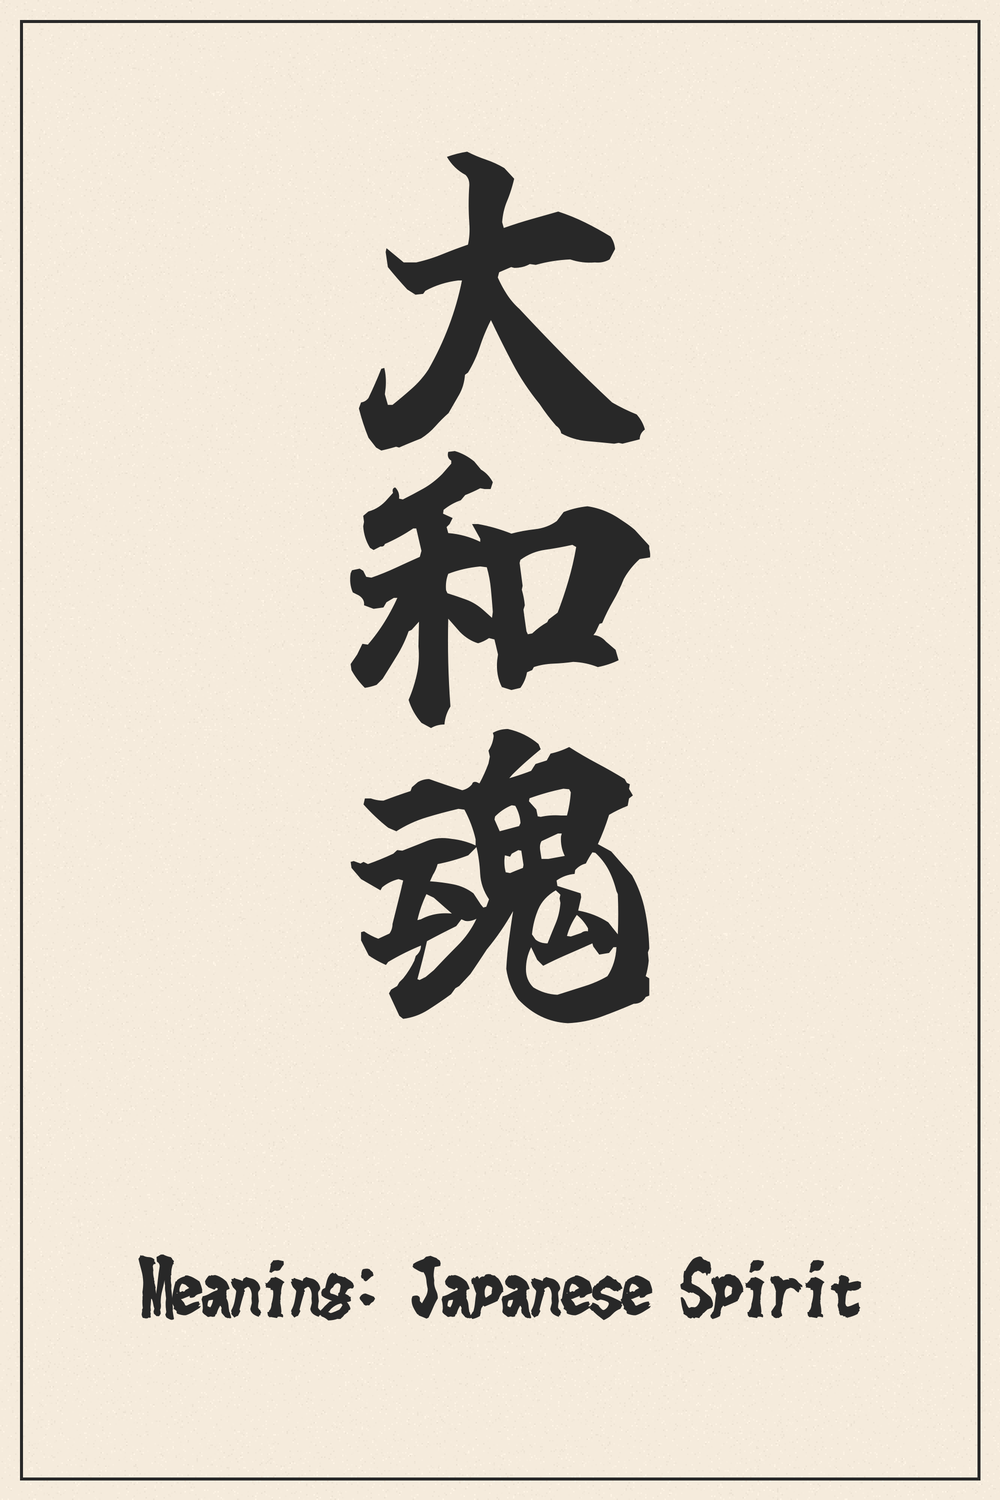 大和魂
Meaning: Japanese Spirit